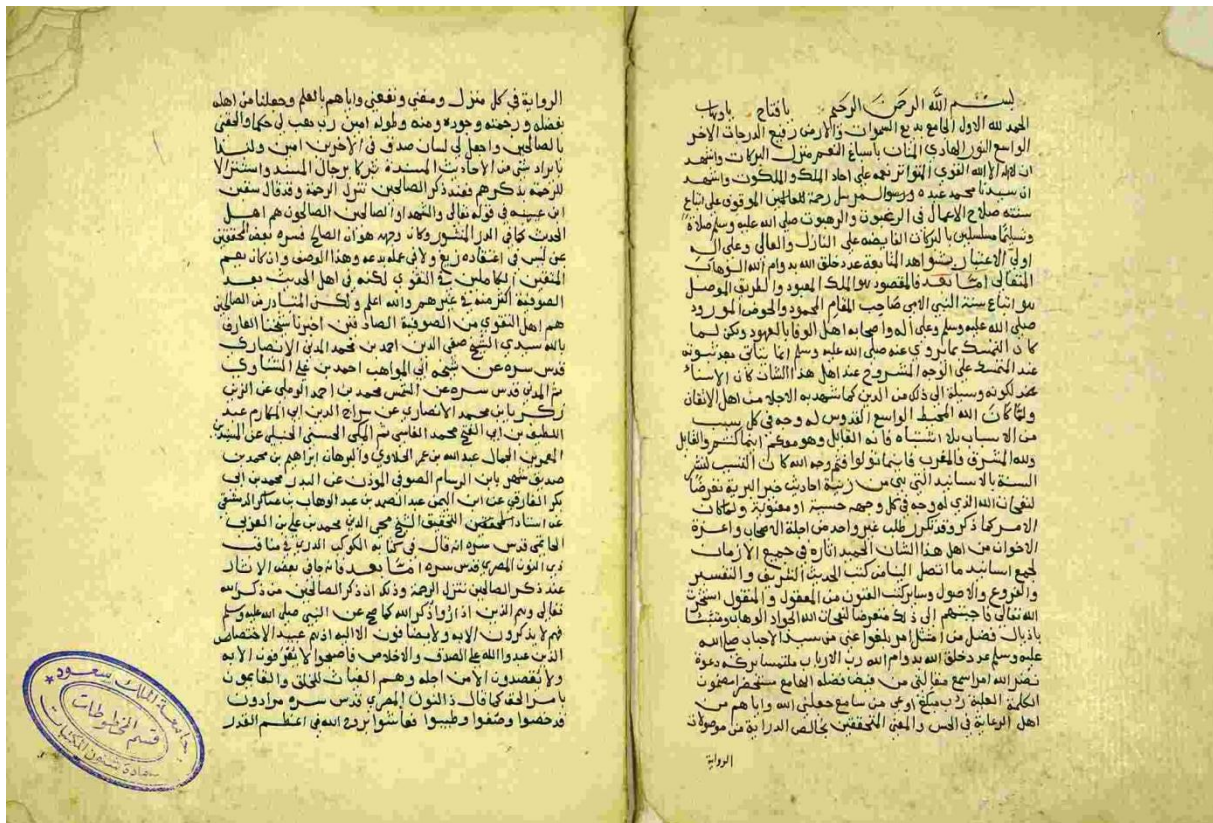 بسم الله الرحمن الرحيم يا فتاح يا وهاب
الحمد لله الاول الجامع بديع السموات والارض رفيع الدرجات الاخر
الواسع النور الهادي المنان باسباغ النعم منزل البركات واشهد
ان لا اله الا الله القوي المتواتر نعمه على احاد الملك والملكوت واشهد
ان سيدنا محمد عبده ورسوله مرسل رحمة للعالمين الموقوف على اتباع
سنته صلاح الاعمال في الرغبوت والرهبوت صلى الله عليه وسلم صلاة
وتسليما مسلسلين بالبركات الفايضه على النازل والعالي وعلى ال
اولي الاعتبار بشواهد المتابعة عدد خلق الله بدوام الله الوهاب
المتعالي امّا بعد فالمقصود هو الملك المعبود والطريق الموصل
هو اتباع سنة النبي الامي صاحب المقام المحمود والحوض المورود
صلى الله عليه وسلم وعلى آله واصحابه اهل الوفا بالعهود ولكن لما
كان التمسك بما يروى عنه صلى الله عليه وسلم انما يتاتى بعد ثبوته
عند المتمسك على الوجه المشروح عند اهل هذا الشان كان الاسناد
لكونه وسيلة الى ذلك من الدين كما شهد به الاجلا من اهل الاتقان
ولمّا كان الله المحيط الواسع القدوس له وجه في كل سبب
من الاسباب بلا اشتباه فانه القايل وهو معكم اينما كنتم والقايل
ولله المشرق والمغرب فاينما تولوا فثم وجه الله كان التسبب لنشر
السنة بالاسانيد التي هي من احاديث خير البرية تعرضًا
لنفحات الله الذي له وجه في كل وجهه حسية او معنوية ولما كان
الامر كما ذكر وقد تكرر طلب غير واحد من اجلة الاصحاب واعزة
الاخوان من اهل هذا الشان الحميد اثاره في جميع الازمان
لجمع اسانيد ما اتصل الينا من كتب الحديث الشريف والتفسير
والفروع والاصول وساير كتب الفنون من المعقول والمنقول استخرت
الله تعالى فاجبتهم الى ذلك متعرضا لنفحات الله الجواد الوهاب ومتشبثا
باذيال فضل من امتثل امر بلغوا عني من سيد الاحباب صلى الله
عليه وسلم عدد خلق الله بدوام الله رب الارباب ملتمسا بركه دعوة
نضر الله امرا سمع مقالتي من فيض فضله الهامع مستحضرا مضمون
الكلمة العلية رب مبلغ اوعى من سامع جعلني الله واياهم من
اهل الرعاية في الحس والمعنى المتحققين بخالص الدراية من موصولات
الرواية
الرواية في كل منزل ومغنى ونفعني واياهم بالعلم وجعلنا من اهله
بفضله ورحمته وجوده ومنه وطوله امين رب هب لي حكما والحقني
بالصالحين واجعل لي لسان صدق في الاخرين امين ولنبدا
بايراد شي من الاحاديث المسندة تبركا برجال المسند واستنزالا
للرحمة بذكرهم فعند ذكر الصالحين تنزل الرحمة وقد قال سفين
ابن عيينه في قوله تعالى والشهداء والصالحين الصالحون هم اهل
الحديث كما في الدر المنثور وكان وجهه هو ان الصالح فسره بعض المحققين
عن ليس في اعتقاده زيغ ولا في عمله بدعه وهذا الوصف وان كان يعم
المتقين الكاملين في التقوى لكنه في اهل الحديث بعد
الصوفية اكثر منه في غيرهم والله اعلم ولكن المتبادر من الصالحين
هم اهل التقوى من الصوفية الصادقين اخبرنا شيخنا العارف
بالله سيدي الشيخ صفي الدين احمد بن محمد المدني الانصاري
قدس سره عن شيخه ابي المواهب احمد بن علي الشناوي
ثم المدني قدس سره عن الشمس محمد بن احمد الرملي عن الزين
زكريا بن محمد الانصاري عن سراج الدين ابي المكارم عبد
اللطيف بن ابي الفتح محمد الفاسي ثم المكي الحسني الحنبلي عن السيدين
المعمرين الجمال عبد الله بن عمر الحلاوي والبرهان ابراهيم بن محمد بن
صديق شهر بابن الرسام الصوفي الموذن عن البدر محمد بن ابي
بكر الفارقي عن ابي اليمن عبد الصمد بن عبد الوهاب بن عساكر الدمشقي
عن استاذ اهل التحقيق الشيخ محي الدين محمد بن علي بن العربي
الحاتمي قدس سره انه قال في كتابه الكوكب الدري في مناقب
ذي النون المصري قدس سره امّا بعد فانه جا في بعض الاثار
عند ذكر الصالحين تتنزل الرحمة وذلك ان ذكر الصالحين من ذكر الله
تعالى وهم الذين اذا رؤوا ذكر الله كما صح عن النبي صلى الله عليه وسلم
فهم لا يذكرون الا به ولا يضافون الا اليه اذ هم عبيد الاختصاص
الذين عبدوا الله على الصدق والاخلاص فاصبحوا لا يعرفون الا به
ولا يقصدون الا من اجله وهم الغياث للخلق والقايمون
بامر الحق كما قال ذا النون المصري قدس سره مرادون
قد خصوا وصفوا وطيبوا فعاشوا بروح الله في اعظم القدر
جامعة الملك سعود
قسم المخطوطات
عمادة شئون المكتبات